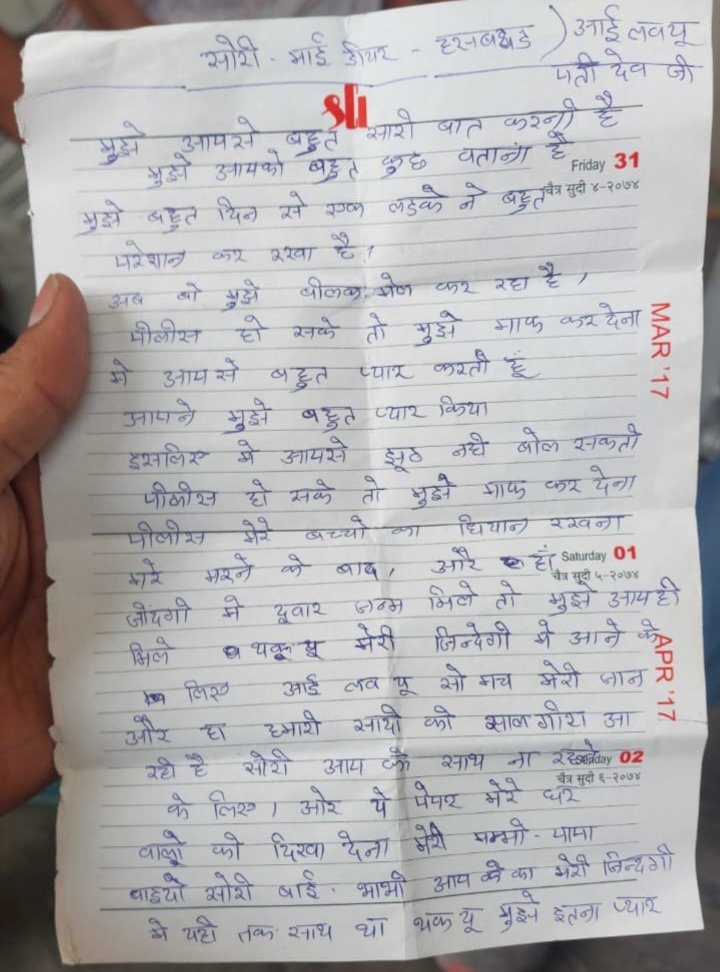 सोरी - माई डीयर - हसबखड ) आई लव यू
पती देव जी
sli
मुझे आपसे बहुत सारी बात करनी है
मुझे आपको बहुत कुछ बताना है
Friday 31
चैत्र सुदी ४-२०७४
मुझे बहुत दिन से एक लडके ने बहुत
परेशान कर रखा है।
अब वो मुझे बीलक मेल कर रहा है,
पीलीस हो सके तो मुझे माफ कर देना
MAR '17
मे आपसे बहुत प्यार करती हूँ
आपने मुझे बहुत प्यार किया
इसलिए मे आपसे झूठ नही बोल सकती
पीलीस हो सके तो मुझे माफ कर देना
पीलीस मेरे बच्चो का धियान रखना
मेरे मरने के बाद, और हाँ
Saturday 01
चैत्र सुदी ५-२०७४
जींदगी मे दूबार जन्म मिले तो मुझे आप ही
मिले थकू यू मेरी जिन्देगी मे आने के
APR '17
लिए आई लव यू सो मच मेरी जान
और हा हमारी सादी की सालगीरा आ
रही है सोरी आप के साथ ना रहने
Sunday 02
चैत्र सुदी ६-२०७४
के लिए। और ये पेपर मेरे घर
वालो को दिखा देना मेरी मम्मी - पापा
बाइयो सोरी बाई - भाभी आप के का मेरी जिन्दगी
मे यही तक साथ था थक यू मुझे इतना प्यार